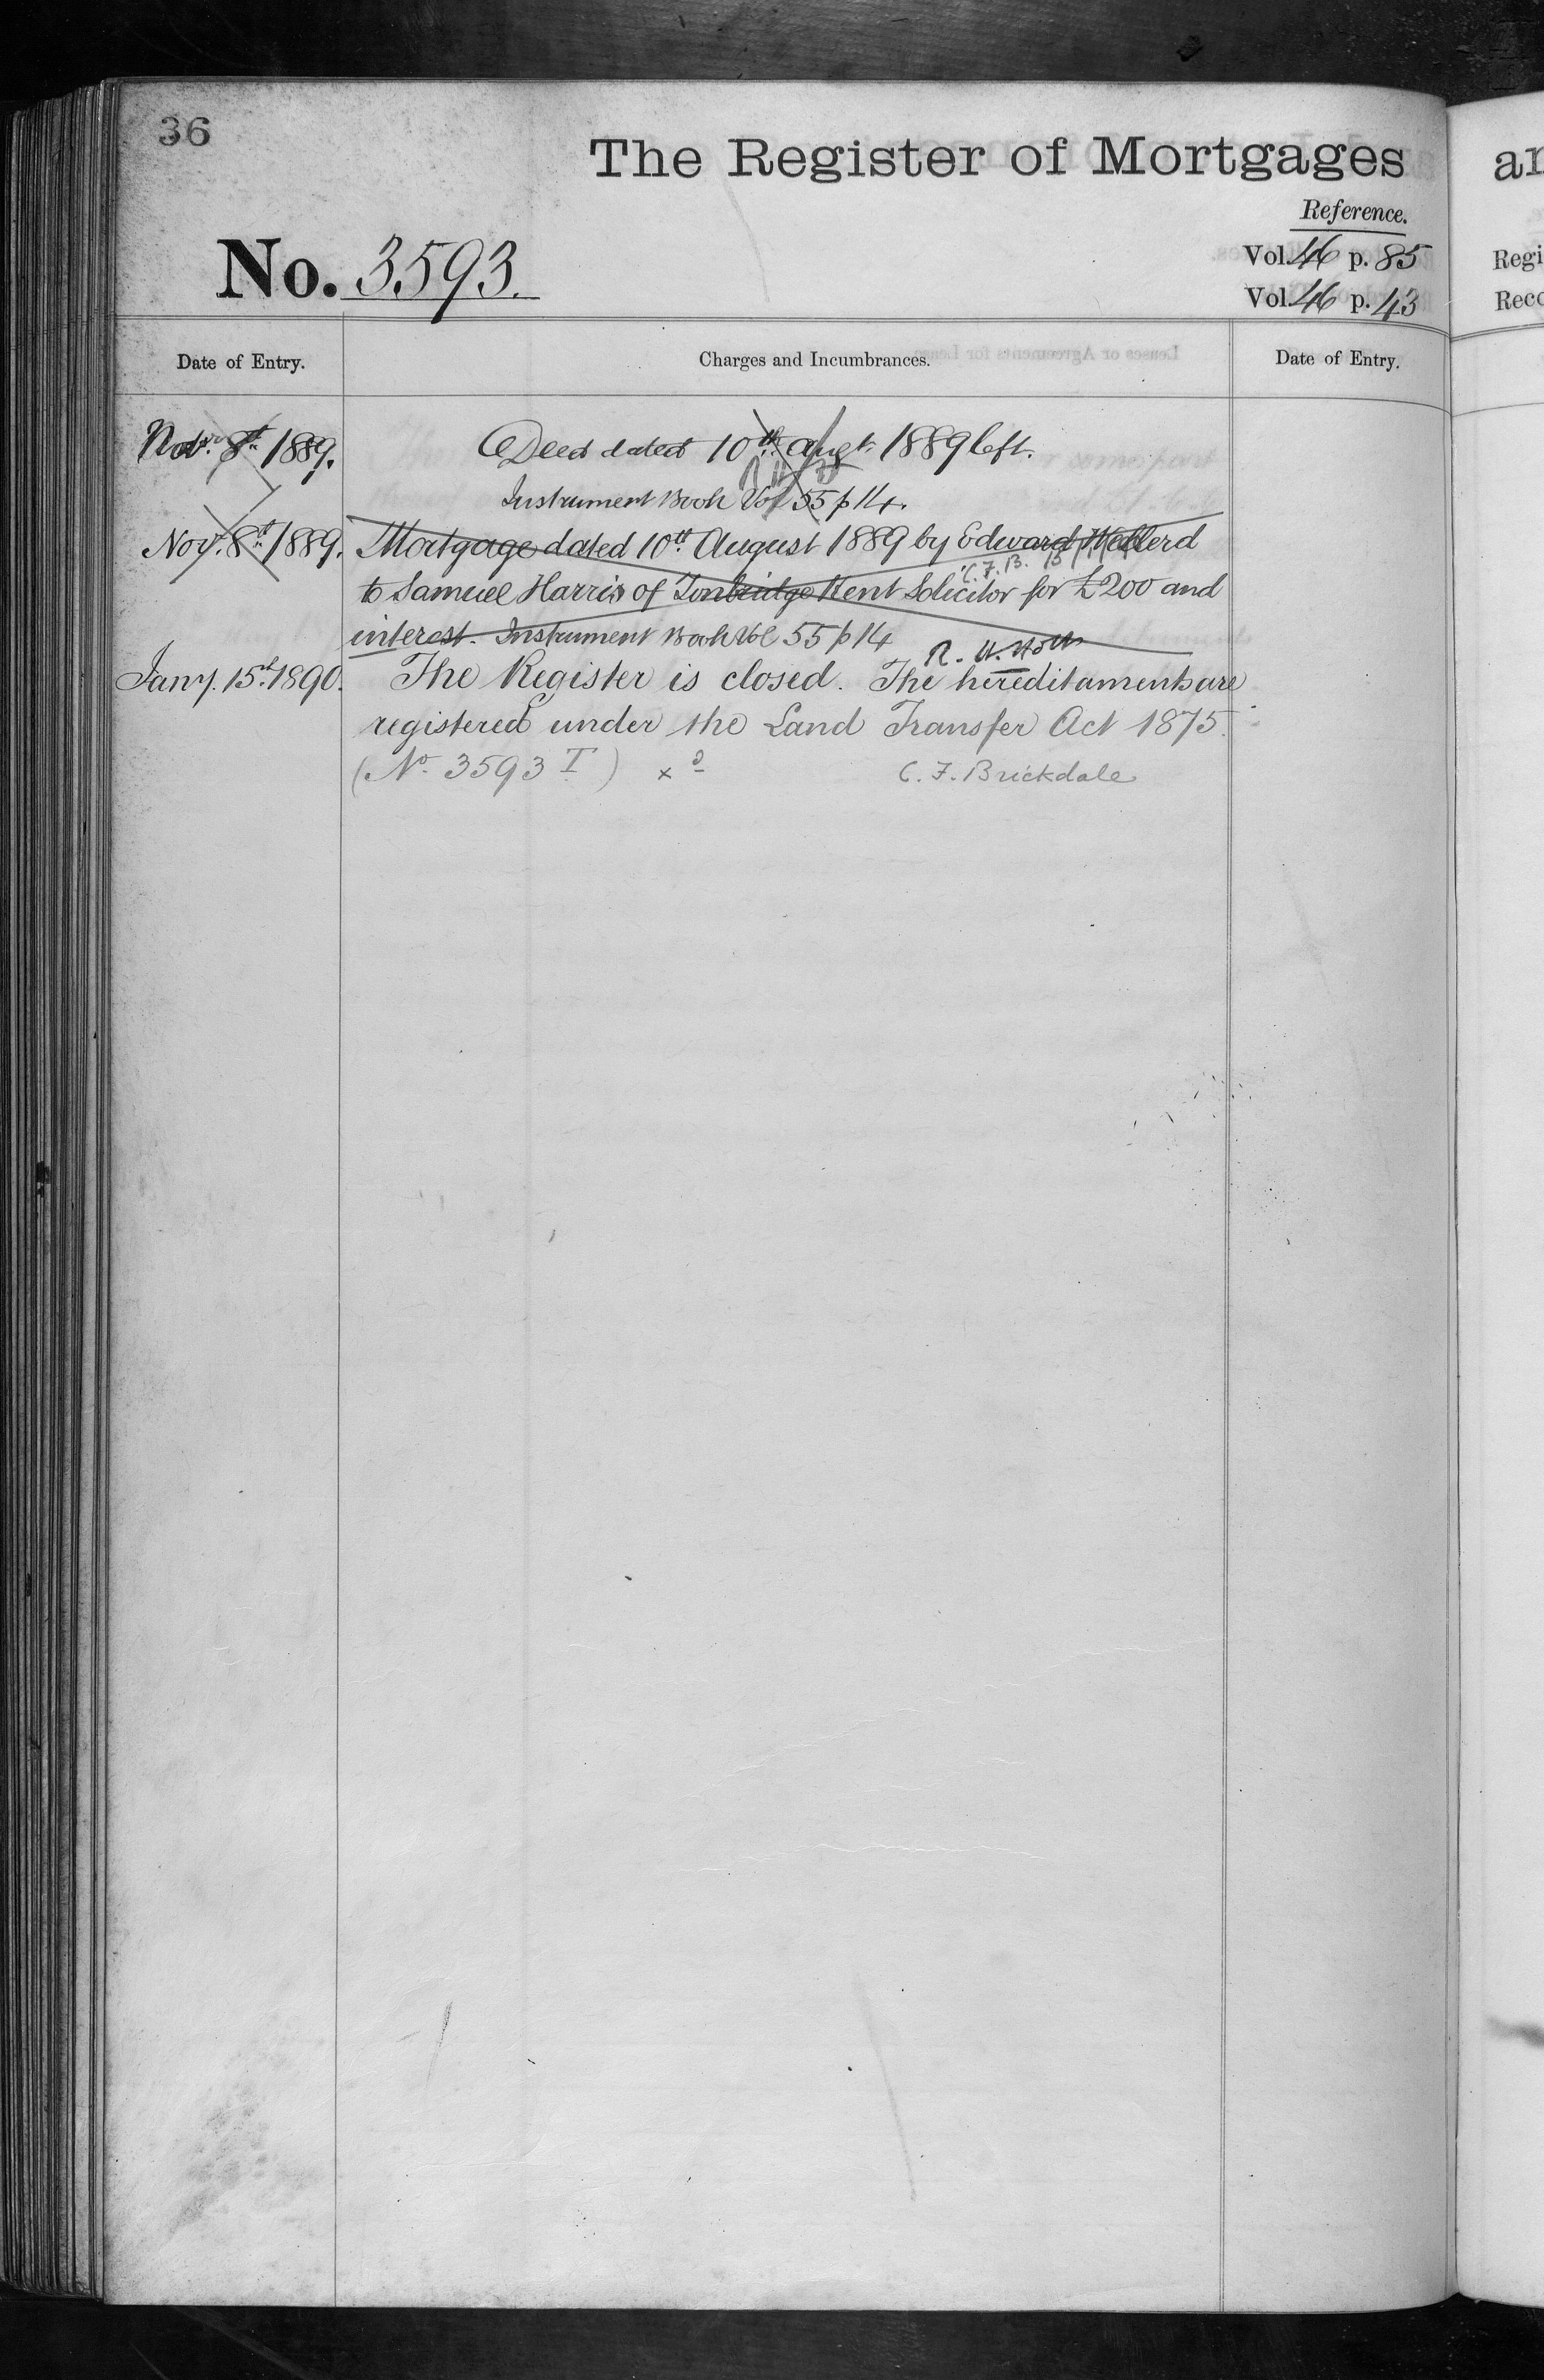 36
The Register of Mortgages
Reference.
No. 3593.
Vol. 46 p. 85
Vol. 46 p. 43
Date of Entry.
Charges and Incumbrances.
Date of Entry.
Novr. 8th 1889.
Deed dated 10th Augt. 1889 left.
Instrument Book Vol 55 p 14.
Nov. 8th 1889.
Mortgage dated 10th August 1889 by Edward
C. F. B.
to Samuel Harris of Tonbridge Kent Solicitor for £200 and
interest. Instrument Book Vol 55 p 14
Jany. 15th 1890.
The Register is closed. The hereditaments are
registered under the Land Transfer Act 1875.
(No. 3593 I)
C. F. Brickdale
an
Regi
Reco